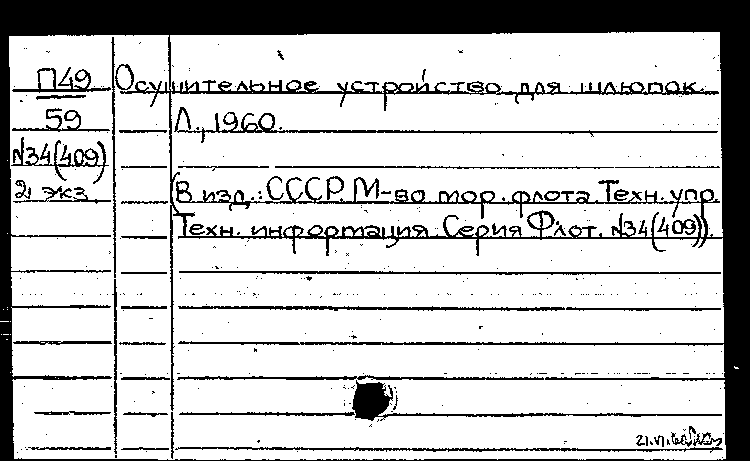 П49 Осушительное устройство для шлюпок.
59 Л., 1960.
№34(409)
2 экз. (В изд.: СССР. М-во мор. флота. Техн. упр.
Техн. информация. Серия Флот. №34(409))
21.VI.